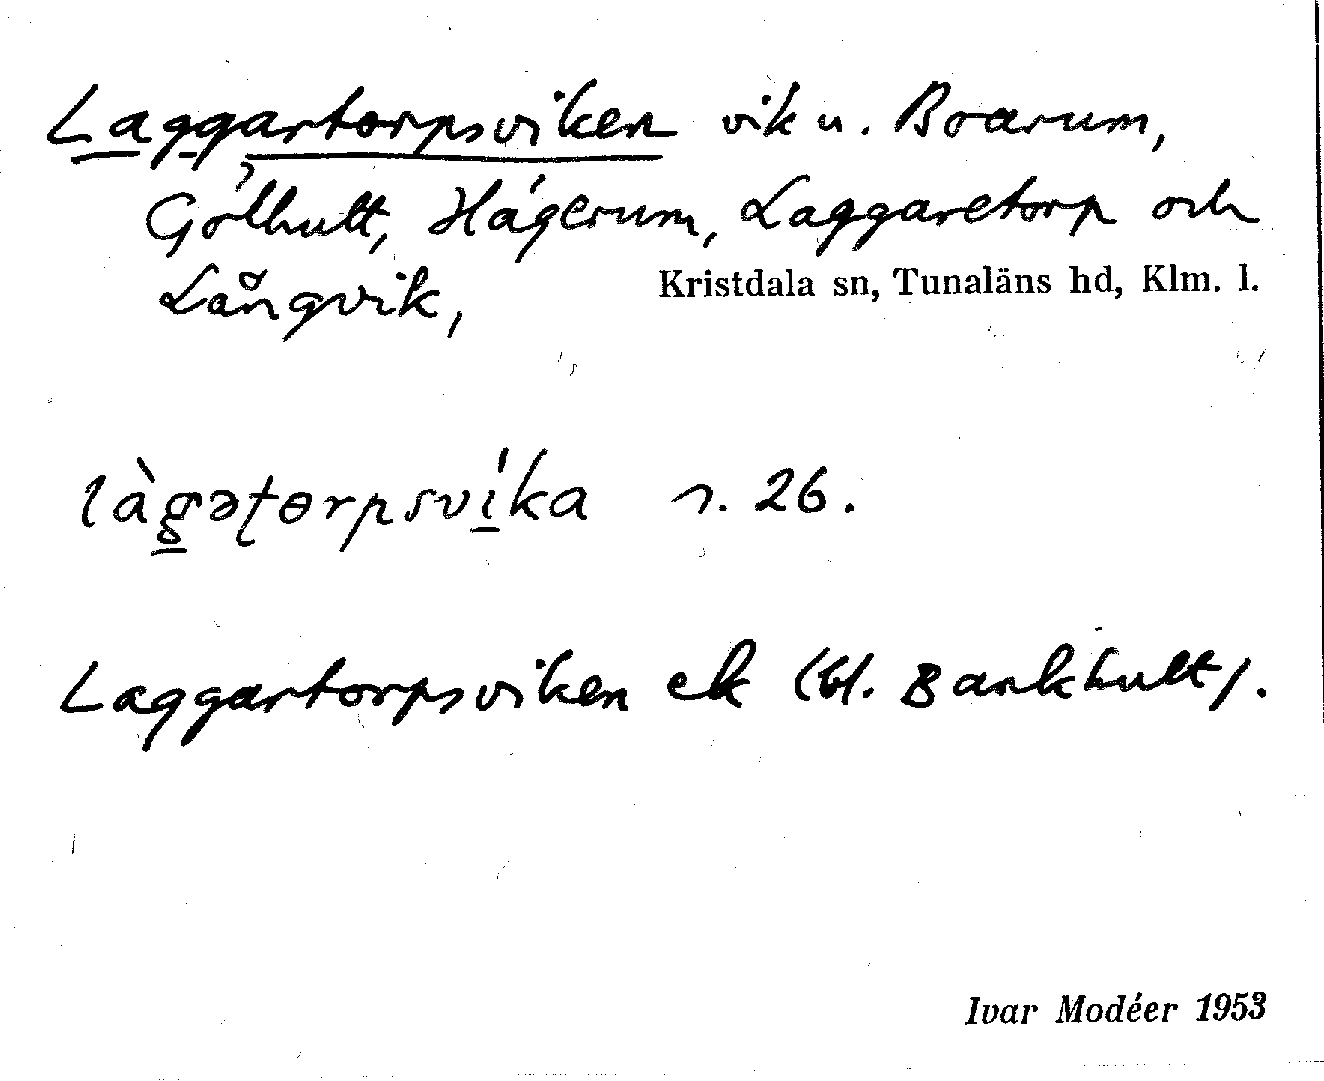 Laggartorpsviken vik u. Boarum,
Gölhult, Hägerum, Laggaretorp och
Långvik,
Kristdala sn, Tunaläns hd, Klm. l.
làg̲əʈɵrpsví̲ka s. 26.
Laggartorpsviken ek (bl. Bankhult).
Ivar Modéer 1953